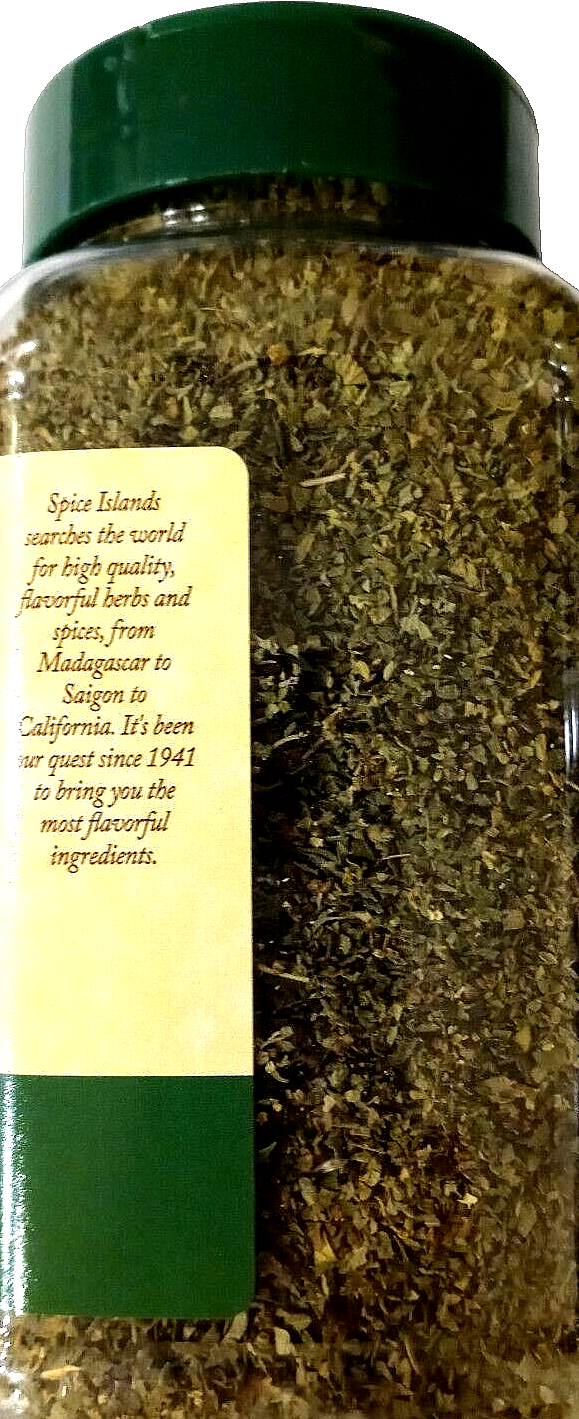 Spice Islands
searches the world
for high quality,
flavorful herbs and
spices, from
Madagascar to
Saigon to
California. It's been
our quest since 1941
to bring you the
most flavorful
ingredients.